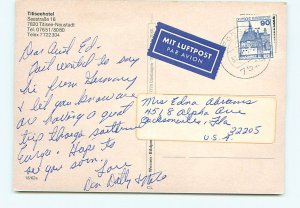 Titiseehotel
Seestraße 16
7820 Titisee-Neustadt
Tel. 07651/8080
Telex 7722304
Dear Aunt Ed-
Just wanted to say
hi from Germany
& let you know we
are having a great
trip through southern
Europe. Hope to
see you soon.
Love
Dolly &
MIT LUFTPOST
PAR AVION
90
Mrs Edna Abrams
4518 Alpha Ave
Jacksonville, Fla
32205
U.S.A.